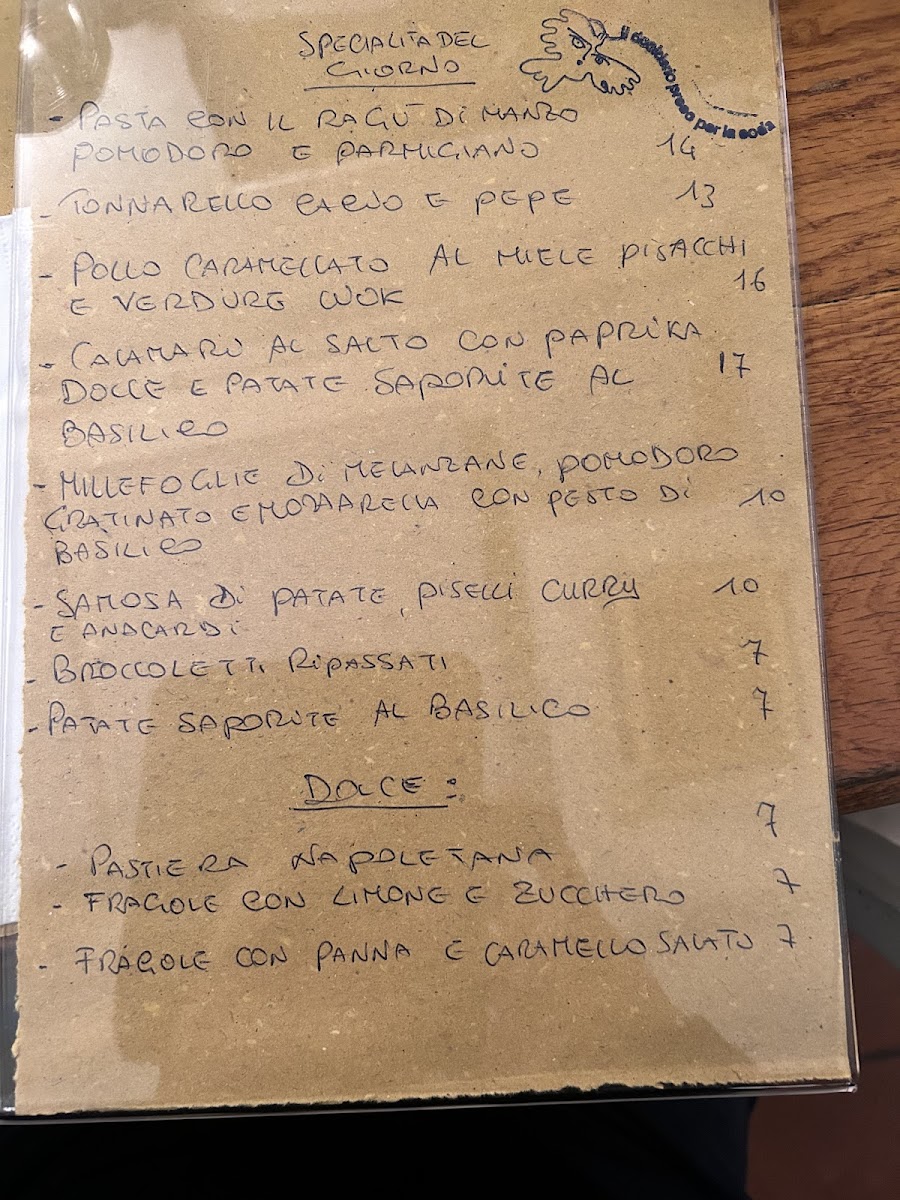 SPECIALITÀ DEL
GIORNO
il desiderio preso per la coda
- PASTA CON IL RAGÙ DI MANZO
POMODORO E PARMIGIANO 14
- TONNARELLO CACIO E PEPE 13
- POLLO CARAMELLATO AL MIELE, PISACCHI
E VERDURE WOK 16
- CALAMARI AL SALTO CON PAPRIKA
DOLCE E PATATE SAPORITE AL 17
BASILICO
- MILLEFOGLIE DI MELANZANE, POMODORO
GRATINATO E MOZZARELLA CON PESTO DI 10
BASILICO
- SAMOSA DI PATATE, PISELLI CURRY 10
E ANACARDI
- BROCCOLETTI RIPASSATI 7
- PATATE SAPORITE AL BASILICO 7
DOLCE :
- PASTIERA NAPOLETANA 7
- FRAGOLE CON LIMONE E ZUCCHERO 7
- FRAGOLE CON PANNA E CARAMELLO SALATO 7